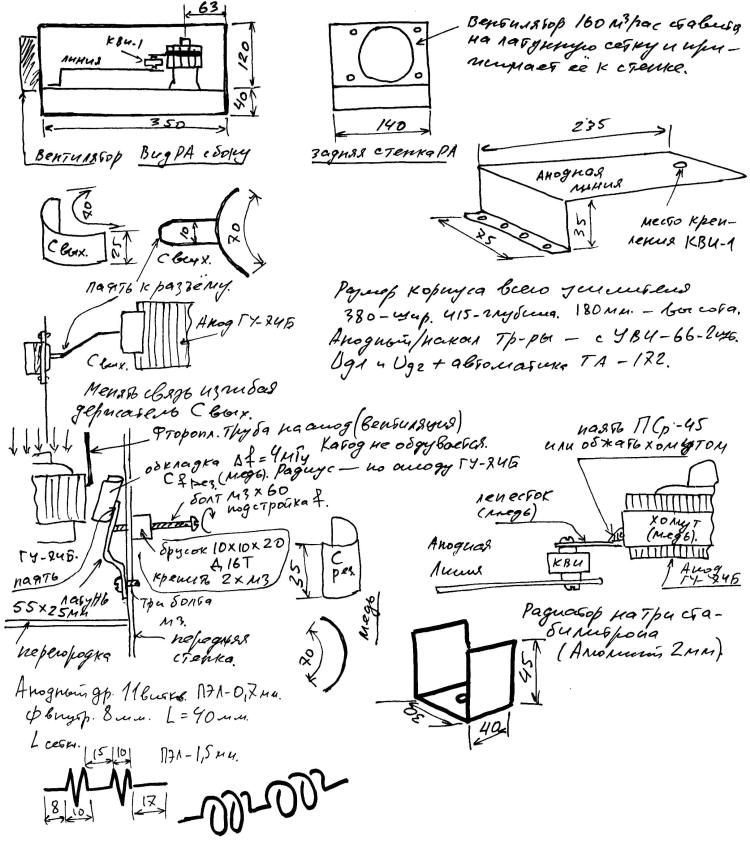 63
КВИ-1
линия
120
40
350
вентилятор Вид РА сбоку
Вентилятор 160 м³/час ставится
на латунную сетку и при-
жимает её к стенке.
140
задняя стенка РА
235
Анодная
линия
35
75
место креп-
ления КВИ-1
70
25
С вых.
10
70
С вых.
паять к разъёму.
Анод ГУ-74Б
С вых.
Менять связь изгибая
держатель С вых.
Размер корпуса всего усилителя
380-шир. 415-глубина. 180мм. - высота.
Анодный/накал тр-ры - с УВИ-66-2шт.
Ug1 и Ug2 + автоматика ТА-172.
Фторопл. труба на анод (вентиляция)
Катод не обдувается.
обкладка Δf=4мГц
С рез. (медь). Радиус - по аноду ГУ-74Б
болт м3х60
подстройка f.
ГУ-74Б.
паять
латунь
55х25мм
брусок 10х10х20
Д16Т
крепить 2хм3
три болта
м3.
перегородка
передняя
стенка.
35
С
рез
70
медь
паять ПСр-45
или обжать хомутом
лепесток
(медь)
хомут
(медь).
Анодная
Линия
КВИ
Анод
ГУ-74Б
Радиатор на три ста-
билитрона
(Алюминий 2мм)
45
30
40
Анодный др. 11 витков. ПЭЛ-0,7мм.
ф внутр. 8мм. L=40мм.
L сетки.
15
10
ПЭЛ-1,5мм.
8
10
17